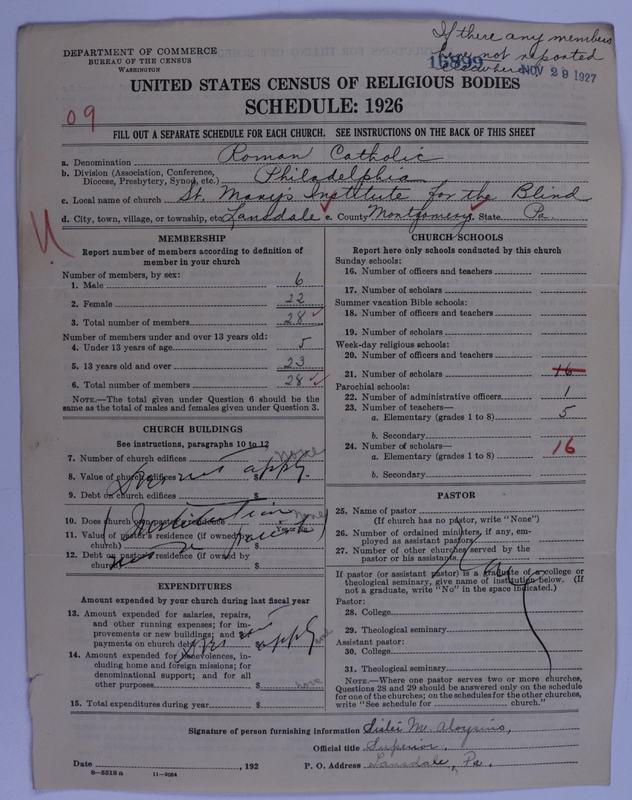 If there any members
DEPARTMENT OF COMMERCE
here not reported
BUREAU OF THE CENSUS
16899
elsewhere
WASHINGTON
NOV 29 1927
UNITED STATES CENSUS OF RELIGIOUS BODIES
SCHEDULE: 1926
09
FILL OUT A SEPARATE SCHEDULE FOR EACH CHURCH. SEE INSTRUCTIONS ON THE BACK OF THIS SHEET
a. Denomination Roman Catholic
b. Division (Association, Conference,
Diocese, Presbytery, Synod, etc.) Philadelphia
c. Local name of church St. Mary's Institute for the Blind
d. City, town, village, or township, etc. Lansdale e. County Montgomery State Pa.
MEMBERSHIP
Report number of members according to definition of
member in your church
Number of members, by sex:
1. Male 6
2. Female 22
3. Total number of members 28
Number of members under and over 13 years old:
4. Under 13 years of age 5
5. 13 years old and over 23
6. Total number of members 28
NOTE.—The total given under Question 6 should be the
same as the total of males and females given under Question 3.
CHURCH BUILDINGS
See instructions, paragraphs 10 to 12
7. Number of church edifices none
8. Value of church edifices $
Does not apply.
9. Debt on church edifices $
10. Does church own pastor's residence none
Yes or No
(Institution
11. Value of pastor's residence (if owned by
church) $
12. Debt on pastor's residence (if owned by
church) $
EXPENDITURES
Amount expended by your church during last fiscal year
13. Amount expended for salaries, repairs,
and other running expenses; for im-
provements or new buildings; and for
payments on church debt $
Does not apply
14. Amount expended for benevolences, in-
cluding home and foreign missions; for
denominational support; and for all
other purposes $ none
15. Total expenditures during year $
CHURCH SCHOOLS
Report here only schools conducted by this church
Sunday schools:
16. Number of officers and teachers
17. Number of scholars
Summer vacation Bible schools:
18. Number of officers and teachers
19. Number of scholars
Week-day religious schools:
20. Number of officers and teachers
21. Number of scholars 16
Parochial schools:
22. Number of administrative officers 1
23. Number of teachers—
a. Elementary (grades 1 to 8) 5
b. Secondary
24. Number of scholars—
a. Elementary (grades 1 to 8) 16
b. Secondary
PASTOR
25. Name of pastor
(If church has no pastor, write "None")
26. Number of ordained ministers, if any, em-
ployed as assistant pastors
27. Number of other churches served by the
pastor or his assistants
If pastor (or assistant pastor) is a graduate of a college or
theological seminary, give name of institution below. (If
not a graduate, write "No" in the space indicated.)
Pastor:
28. College
29. Theological seminary
Assistant pastor:
30. College
31. Theological seminary
NOTE.—Where one pastor serves two or more churches,
Questions 28 and 29 should be answered only on the schedule
for one of the churches; on the schedules for the other churches,
write "See schedule for church."
Signature of person furnishing information Sister M. Aloysius,
Official title Superior,
Date , 192 P. O. Address Lansdale, Pa.
8-5318a 11-9084